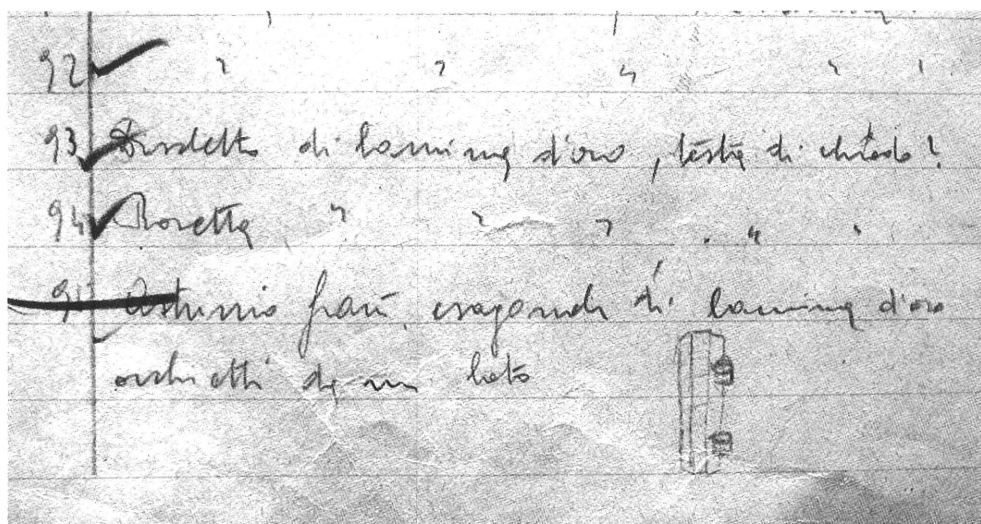 92 " " " " "
93 di lamina d'oro, testa di chiodo?
94 Rosetta " " " " "
Astuccio esagonale di lamina d'oro
occhietti da un lato